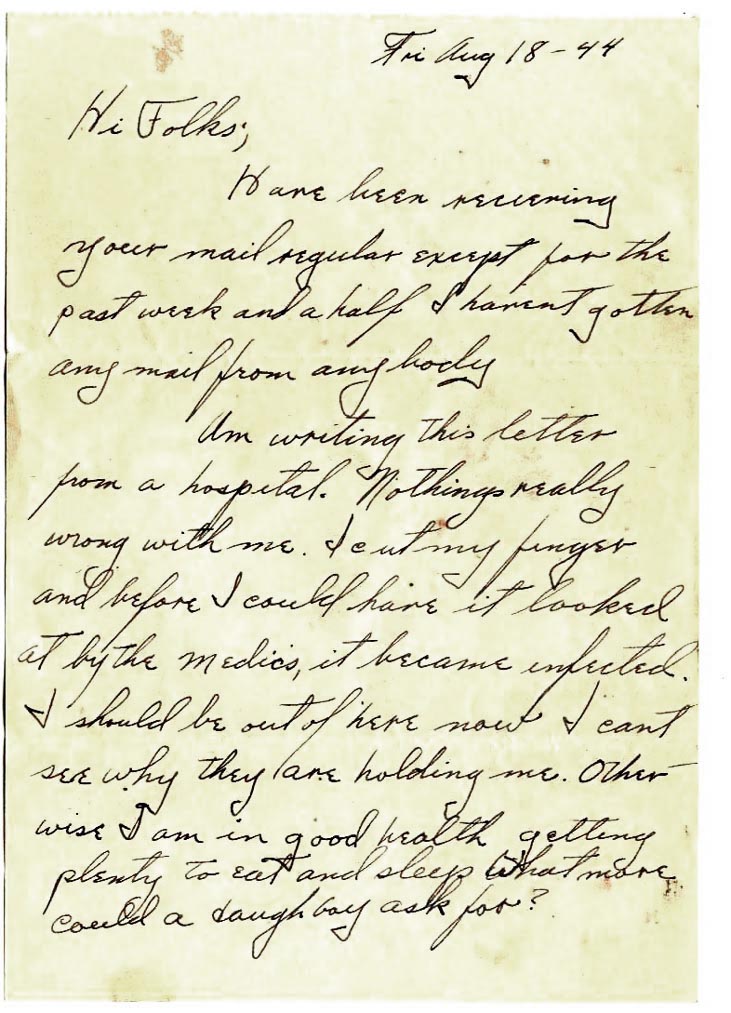 Fri Aug 18-44
Hi Folks;
Have been recieving
your mail regular except for the
past week and a half I havent gotten
any mail from anybody
Am writing this letter
from a hospital. Nothings really
wrong with me. I cut my finger
and before I could have it looked
at by the medics, it became infected.
I should be out of here now I cant
see why they are holding me. Other
wise I am in good health getting
plenty to eat and sleep What more
could a doughboy ask for?